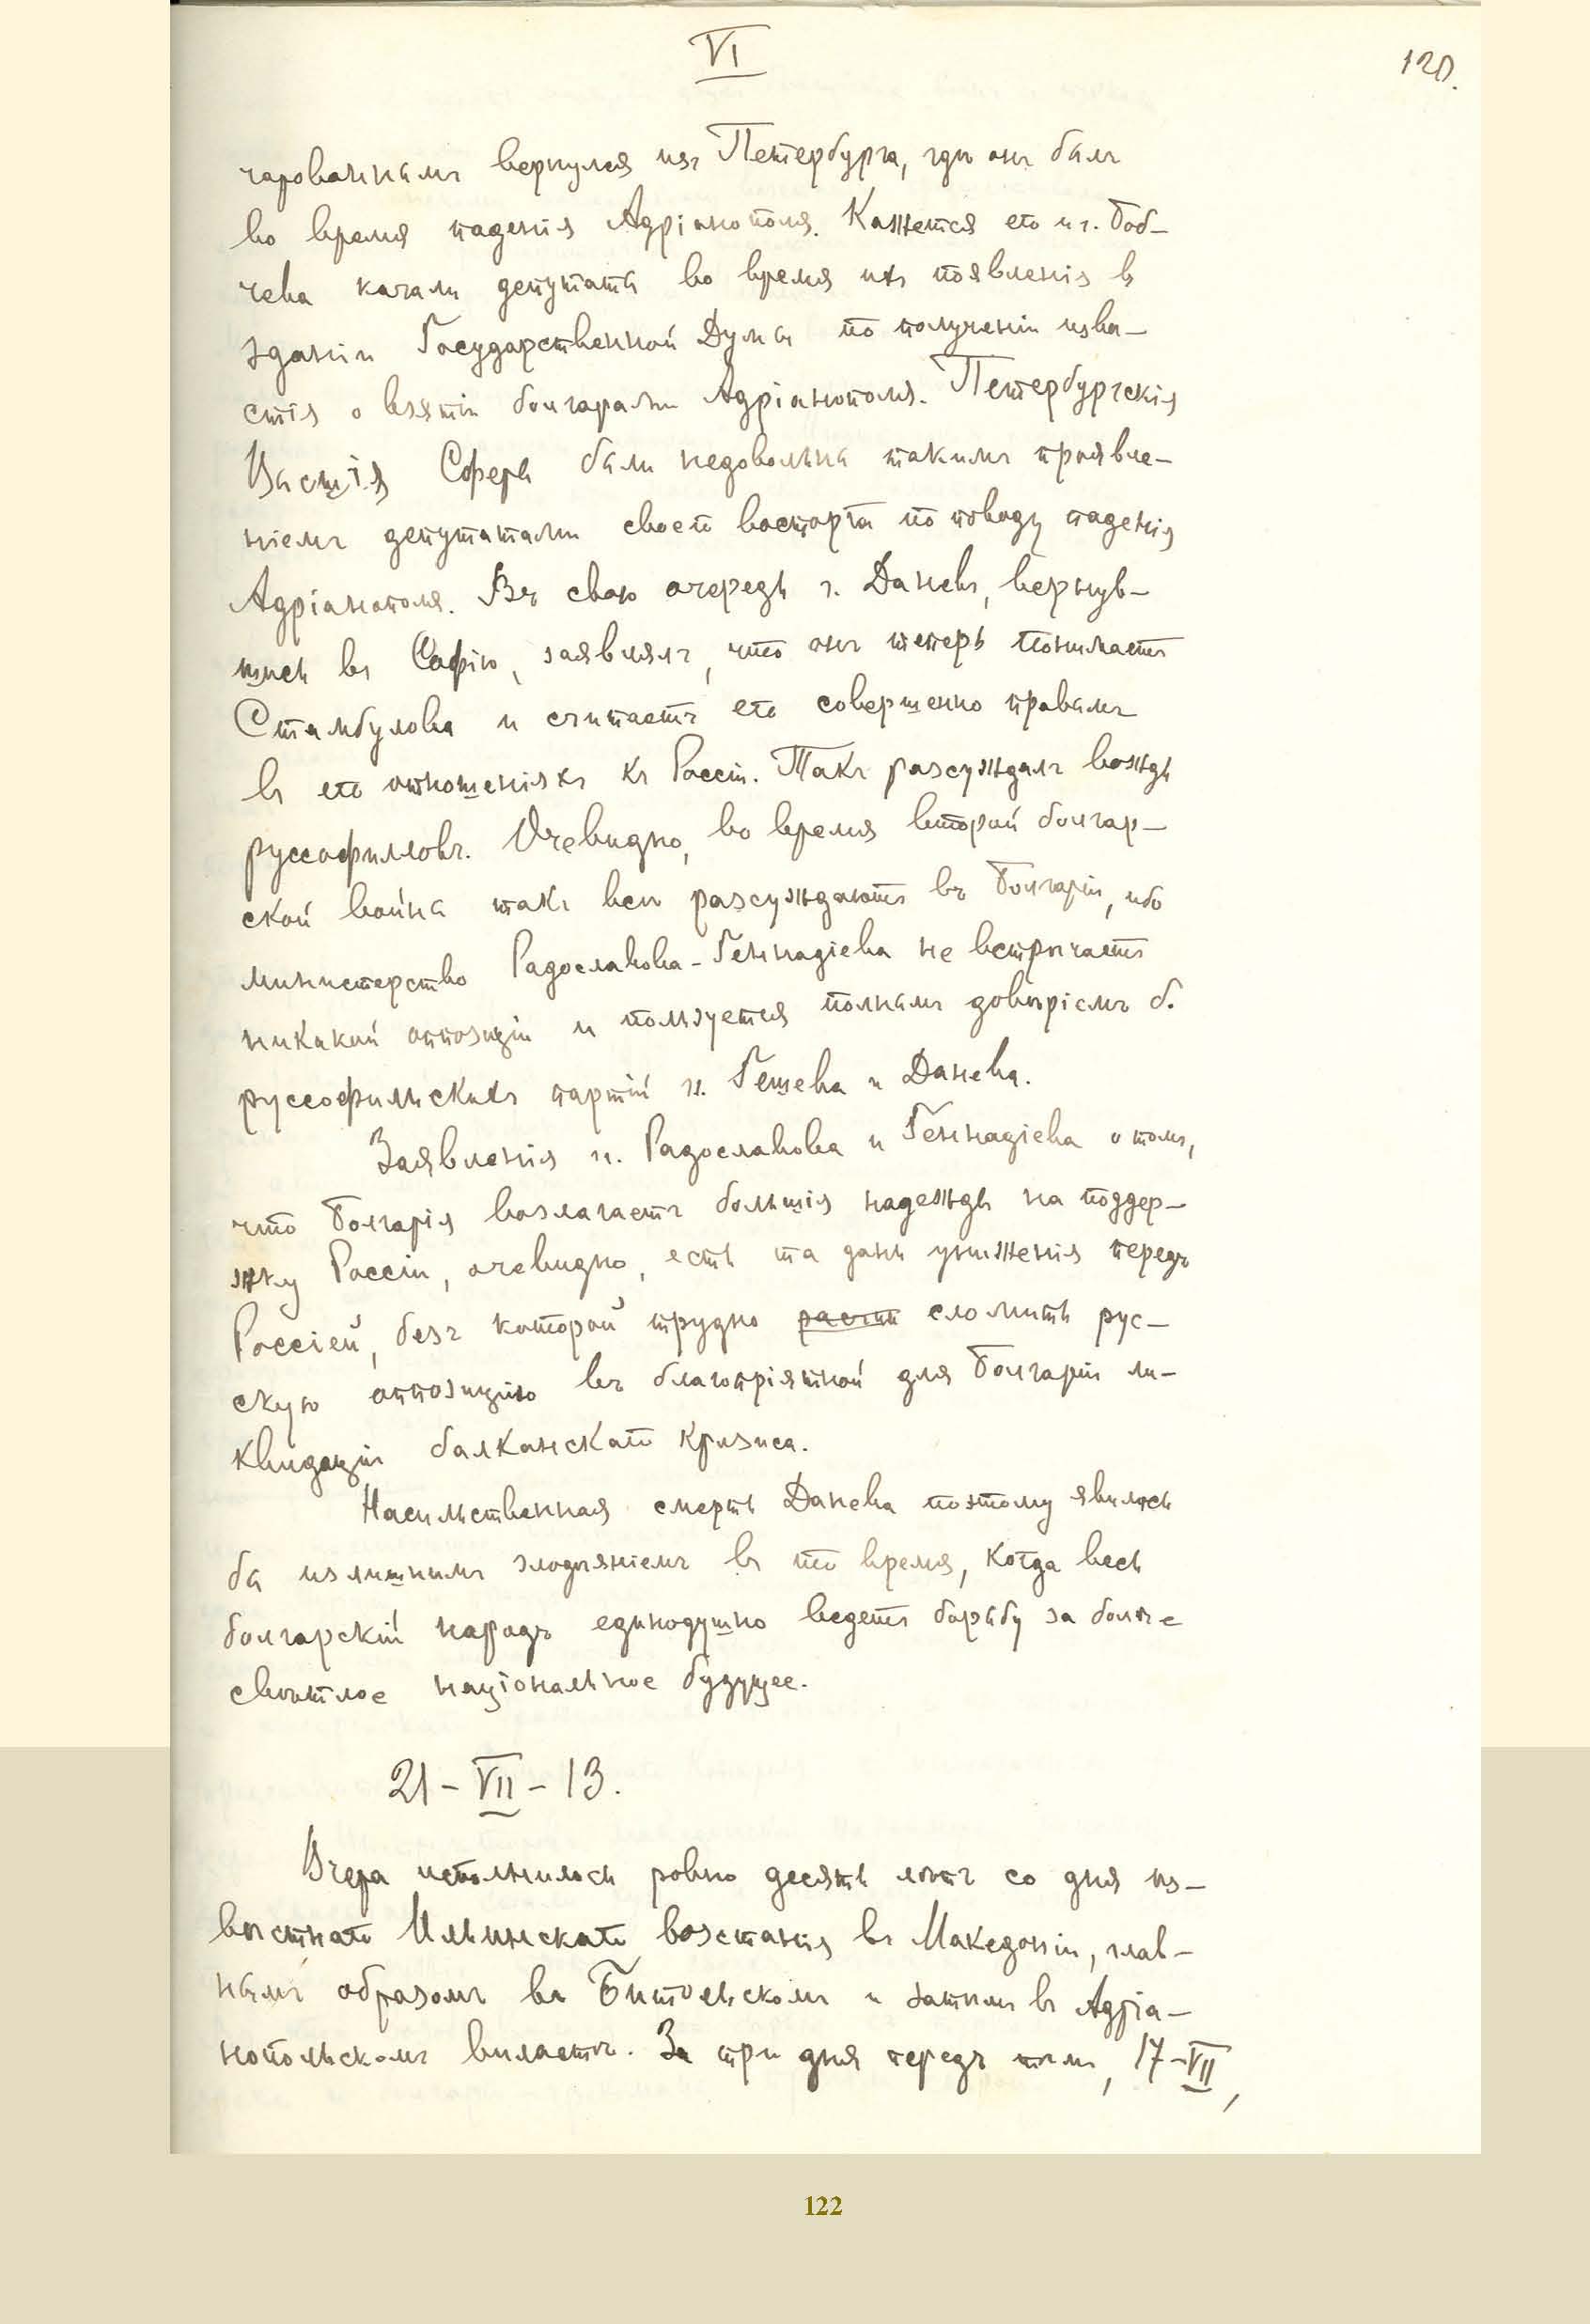 VI
120.
чарованнымъ вернулся изъ Петербурга, гдѣ онъ былъ
во время паденія Адріанополя. Кажется его и г. Боб-
чева качали депутаты во время ихъ появленія въ
зданіи Государственной Думы по полученіи извѣ-
стія о взятіи болгарами Адріанополя. Петербургскія
Высшія Сферы были недовольны такимъ проявле-
ніемъ депутатами своего восторга по поводу паденія
Адріанополя. Въ свою очередь г. Даневъ, вернув-
шись въ Софію, заявлялъ, что онъ теперь понимаетъ
Стамбулова и считаетъ его совершенно правымъ
въ его отношеніяхъ къ Россіи. Такъ разсуждалъ вождь
руссофиловъ. Очевидно, во время второй болгар-
ской войны такъ всѣ разсуждаютъ въ Болгаріи, ибо
министерство Радославова-Геннадіева не встрѣчаетъ
никакой оппозиціи и пользуется полнымъ довѣріемъ б.
руссофильскихъ партій гг. Гешева и Данева.
Заявленія гг. Радославова и Геннадіева о томъ,
что Болгарія возлагаетъ большія надежды на поддер-
жку Россіи, очевидно, есть та дань униженія передъ
Россіей, безъ которой трудно сломить рус-
скую оппозицію въ благопріятной для Болгаріи ли-
квидаціи балканскаго кризиса.
Насильственная смерть Данева поэтому явилась
бы излишнимъ злодѣяніемъ въ то время, когда весь
болгарскій народъ единодушно ведетъ борьбу за болѣе
свѣтлое національное будущее.
21-VII-13.
Вчера исполнилось ровно десять лѣтъ со дня из-
вѣстнаго Ильинскаго возстанія въ Македоніи, глав-
нымъ образомъ въ Битольскомъ и затѣмъ въ Адріа-
нопольскомъ вилаетѣ. За три дня передъ тѣмъ, 17-VII,
122